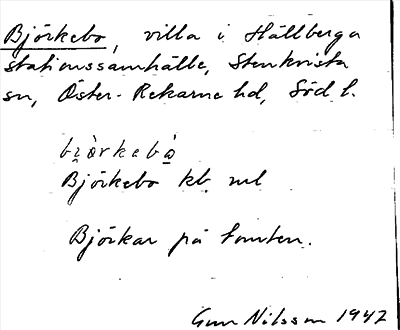 Björkebo, villa i Hällberga
stationssamhälle, Stenkvista
sn, Öster-Rekarne hd, Söd l.
Björkebo kb. ml
Björkar på tomten.
Gun Nilsson 1942